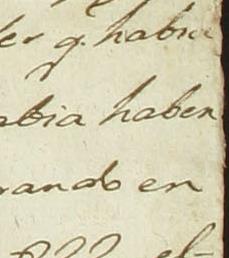 ler q. habia
abia haben
rando en